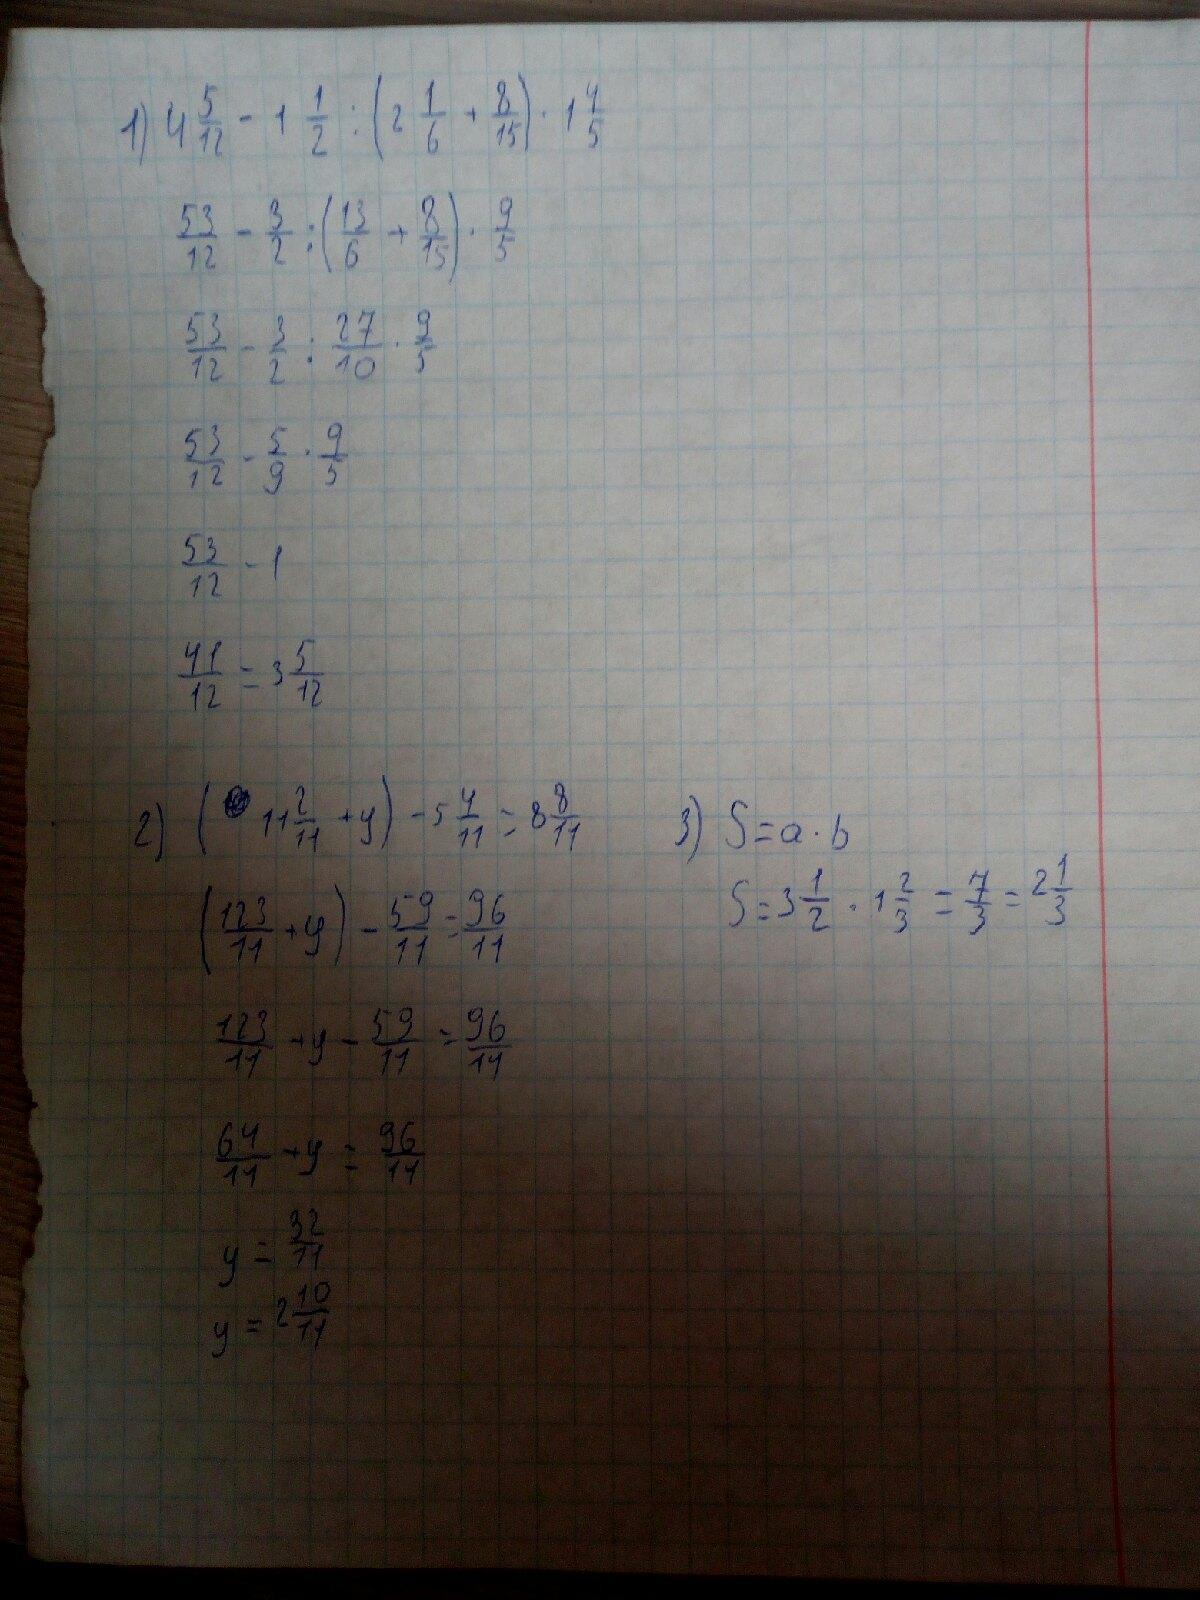 1) 4 5/12 - 1 1/2 : (2 1/6 + 8/15) · 1 4/5
53/12 - 3/2 : (13/6 + 8/15) · 9/5
53/12 - 3/2 : 27/10 · 9/5
53/12 - 5/9 · 9/5
53/12 - 1
41/12 = 3 5/12
2) (11 2/11 + y) - 5 4/11 = 8 8/11
(123/11 + y) - 59/11 = 96/11
123/11 + y - 59/11 = 96/11
64/11 + y = 96/11
y = 32/11
y = 2 10/11
3) S = a · b
S = 3 1/2 · 1 2/3 = 7/3 = 2 1/3